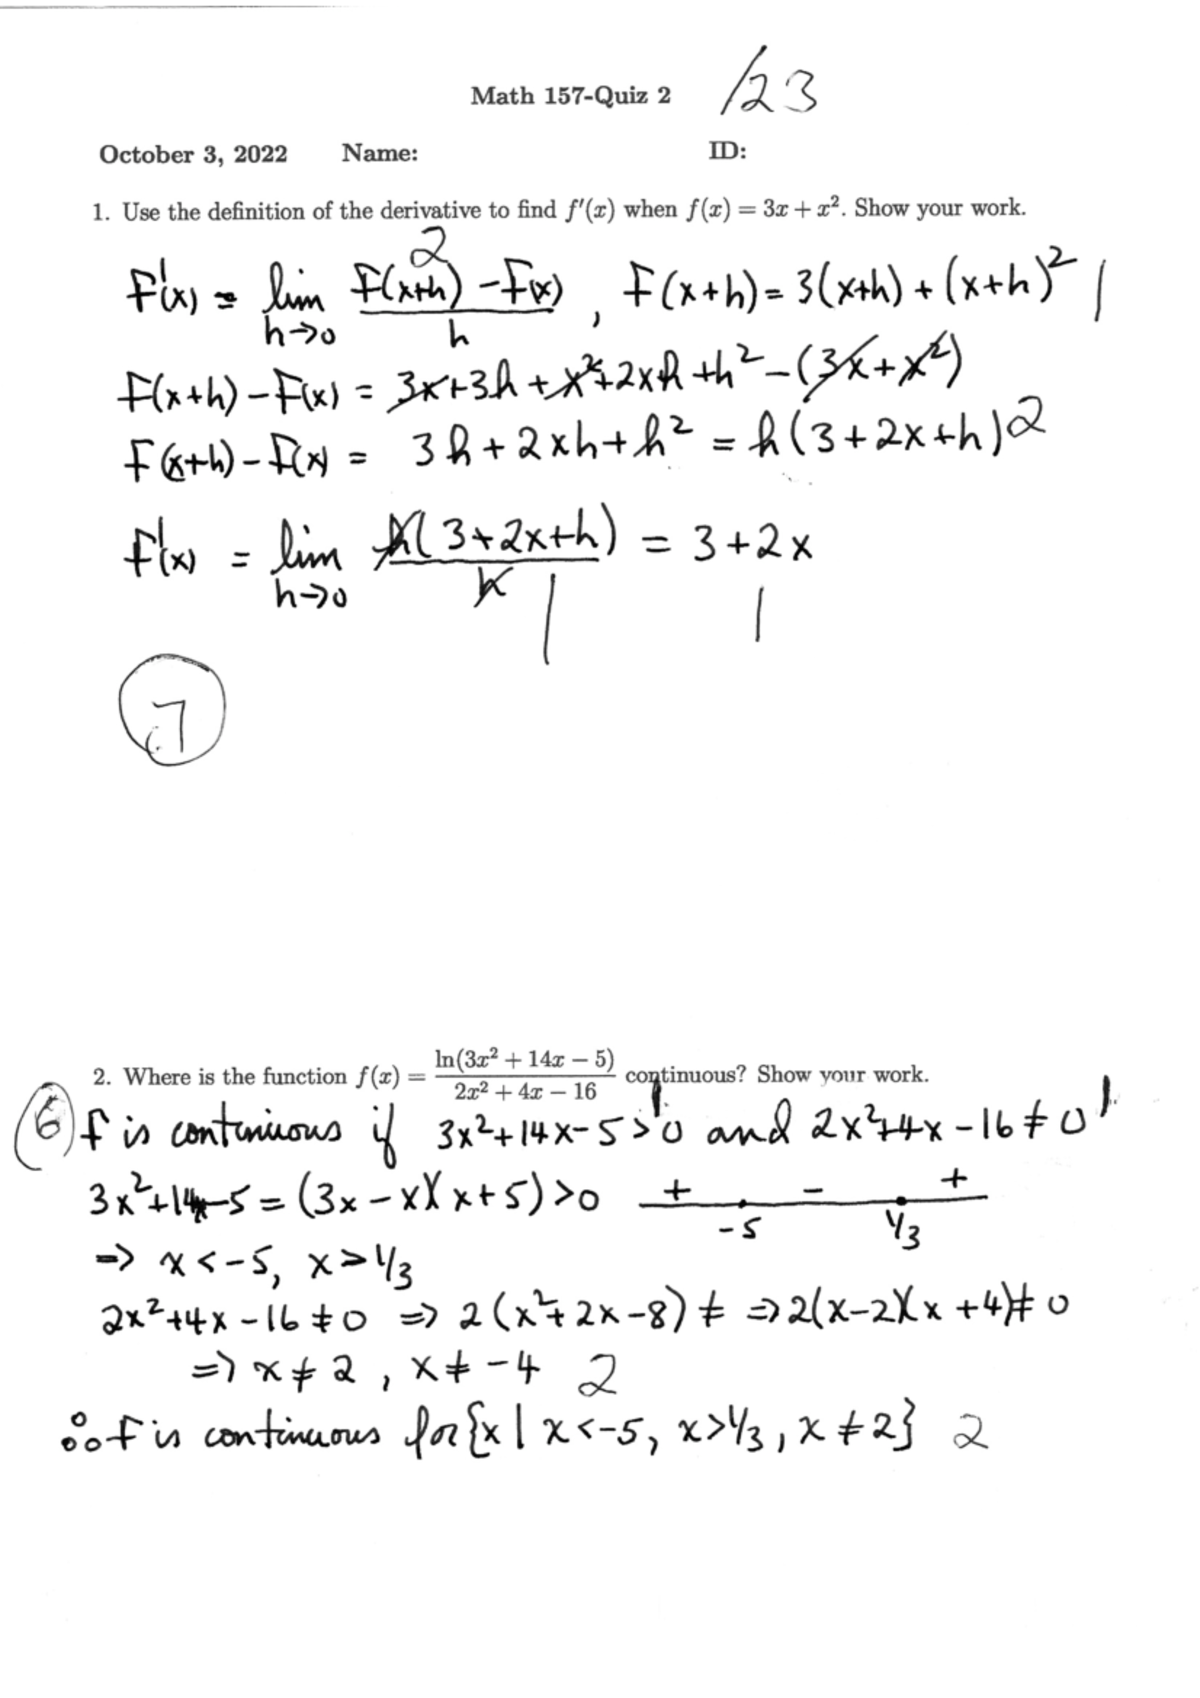 Math 157-Quiz 2 /23
October 3, 2022 Name: ID:
1. Use the definition of the derivative to find f′(x) when f(x) = 3x + x². Show your work.
2
F'(x) = lim h→0 (F(x+h) - F(x))/h , F(x+h) = 3(x+h) + (x+h)² 1
F(x+h) - F(x) = 3x+3h + x²+2xh +h² - (3x+x²)
F(x+h) - F(x) = 3h + 2xh + h² = h(3+2x+h) 2
F'(x) = lim h→0 h(3+2x+h)/h = 3+2x
1 1
7
2. Where is the function f(x) = ln(3x² + 14x − 5)/(2x² + 4x − 16) continuous? Show your work.
6 f is continuous if 3x²+14x-5>0 1 and 2x²+4x-16≠0 1
3x²+14x-5 = (3x-x)(x+5)>0 + - +
-5 1/3
=> x<-5, x>1/3
2x²+4x-16≠0 => 2(x²+2x-8)≠ => 2(x-2)(x+4)≠0
=> x≠2, x≠-4 2
∴ F is continuous for {x | x<-5, x>1/3, x≠2} 2